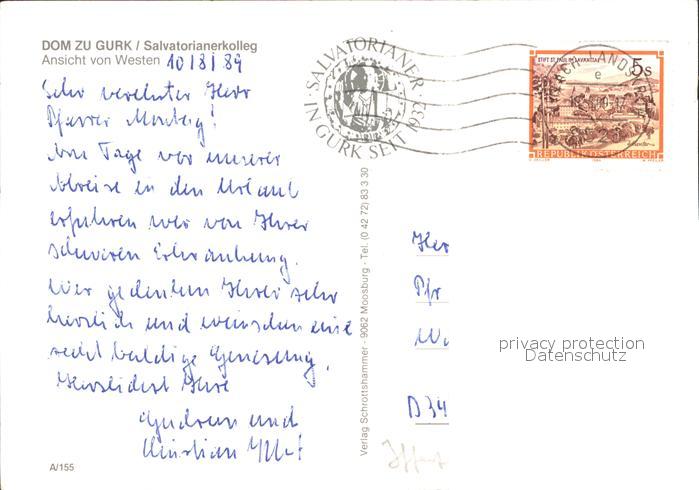 DOM ZU GURK / Salvatorianerkolleg
Ansicht von Westen 10/8/89
Sehr verehrter Herr
Pfarrer
Am Tage vor unserer
Abreise in den Urlaub
erfuhren wir von Ihrer
schweren Erkrankung.
Wir gedenken Ihrer sehr
herzlich und wünschen eine
recht baldige Genesung.
Herzlichst Ihre
Gudrun und
Christian
A/155
Verlag Schrottshammer - 9062 Moosburg - Tel. (0 42 72) 83 3 30
SALVATORIANER
IN GURK SEIT 1932
STIFT ST. PAUL IM LAVANTTAL
5s
REPUBLIK ÖSTERREICH
Her
Pfr
D 34
privacy protection
Datenschutz